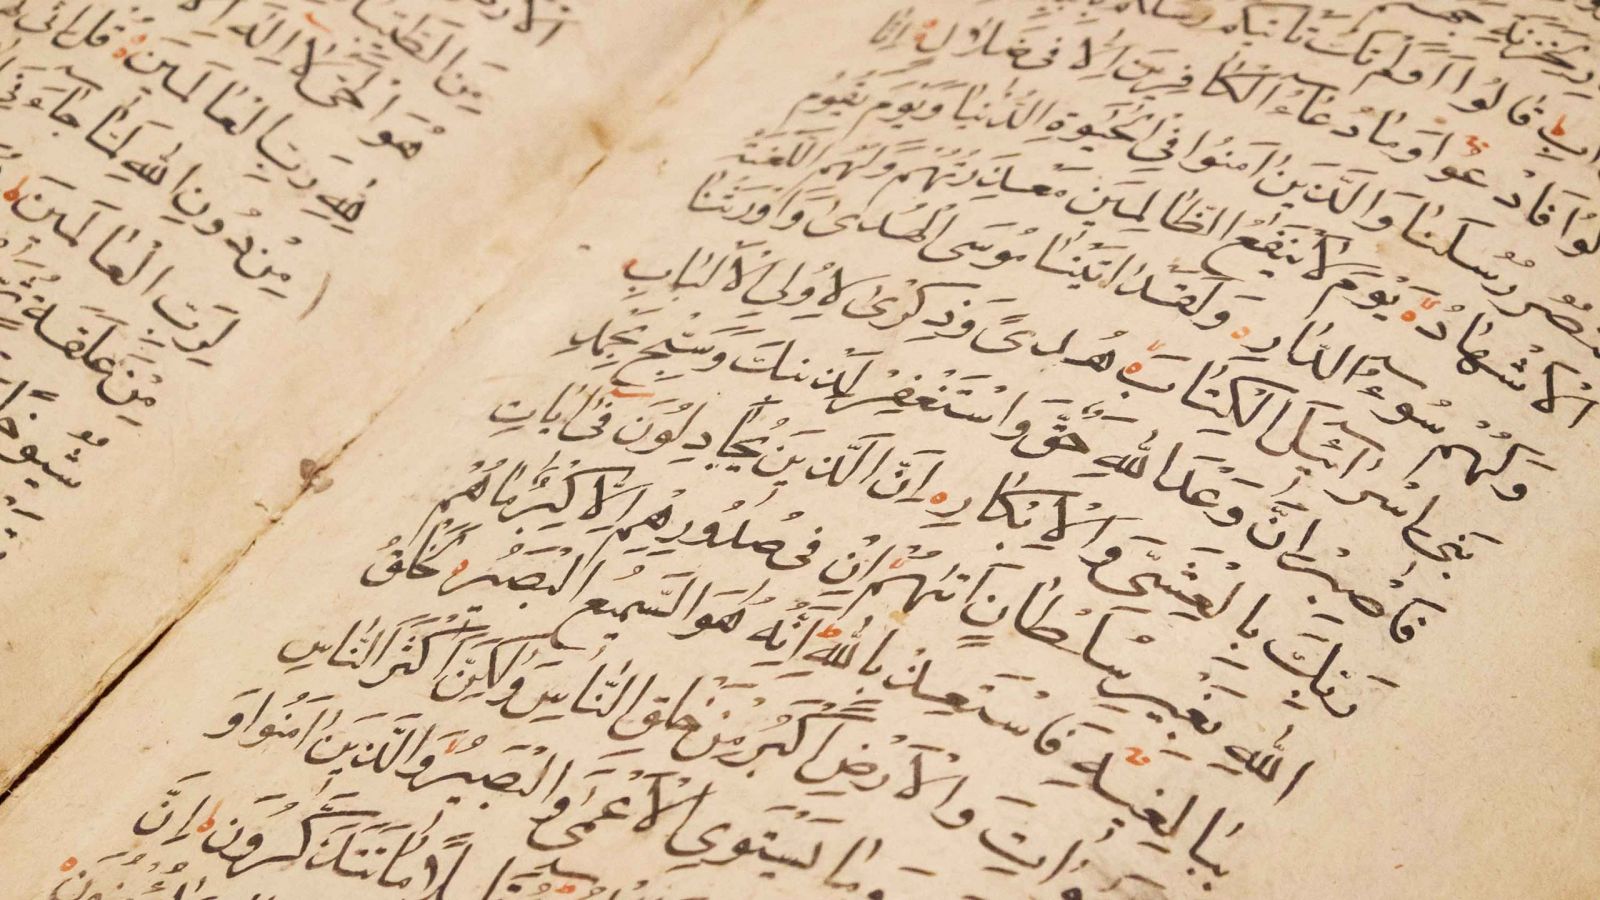 قَالُوا أَوَلَمْ تَكُ تَأْتِيكُمْ رُسُلُكُمْ
قَالُوا فَادْعُوا وَمَا دُعَاءُ الْكَافِرِينَ إِلَّا فِي ضَلَالٍ إِنَّا
لَنَنْصُرُ رُسُلَنَا وَالَّذِينَ آمَنُوا فِي الْحَيٰوةِ الدُّنْيَا وَيَوْمَ يَقُومُ
الْأَشْهَادُ يَوْمَ لَا يَنْفَعُ الظَّالِمِينَ مَعْذِرَتُهُمْ وَلَهُمُ اللَّعْنَةُ
وَلَهُمْ سُوءُ الدَّارِ وَلَقَدْ آتَيْنَا مُوسَى الْهُدَىٰ وَأَوْرَثْنَا
بَنِي إِسْرَائِيلَ الْكِتَابَ هُدًى وَذِكْرَىٰ لِأُولِي الْأَلْبَابِ
فَاصْبِرْ إِنَّ وَعْدَ اللَّهِ حَقٌّ وَاسْتَغْفِرْ لِذَنْبِكَ وَسَبِّحْ بِحَمْدِ
رَبِّكَ بِالْعَشِيِّ وَالْإِبْكَارِ إِنَّ الَّذِينَ يُجَادِلُونَ فِي آيَاتِ
اللَّهِ بِغَيْرِ سُلْطَانٍ أَتَاهُمْ إِنْ فِي صُدُورِهِمْ إِلَّا كِبْرٌ مَا هُمْ
بِبَالِغِيهِ فَاسْتَعِذْ بِاللَّهِ إِنَّهُ هُوَ السَّمِيعُ الْبَصِيرُ لَخَلْقُ
السَّمٰوَاتِ وَالْأَرْضِ أَكْبَرُ مِنْ خَلْقِ النَّاسِ وَلٰكِنَّ أَكْثَرَ النَّاسِ
وَمَا يَسْتَوِي الْأَعْمَىٰ وَالْبَصِيرُ وَالَّذِينَ آمَنُوا وَ
قَلِيلًا مَا تَتَذَكَّرُونَ إِنَّ
مِنَ الطَّيِّبَاتِ
هُوَ الْحَيُّ لَا إِلٰهَ
لِلَّهِ رَبِّ الْعَالَمِينَ قُلْ إِنِّي
مِنْ دُونِ اللَّهِ لَمَّا جَاءَنِي
لِرَبِّ الْعَالَمِينَ
مِنْ عَلَقَةٍ
شُيُوخًا